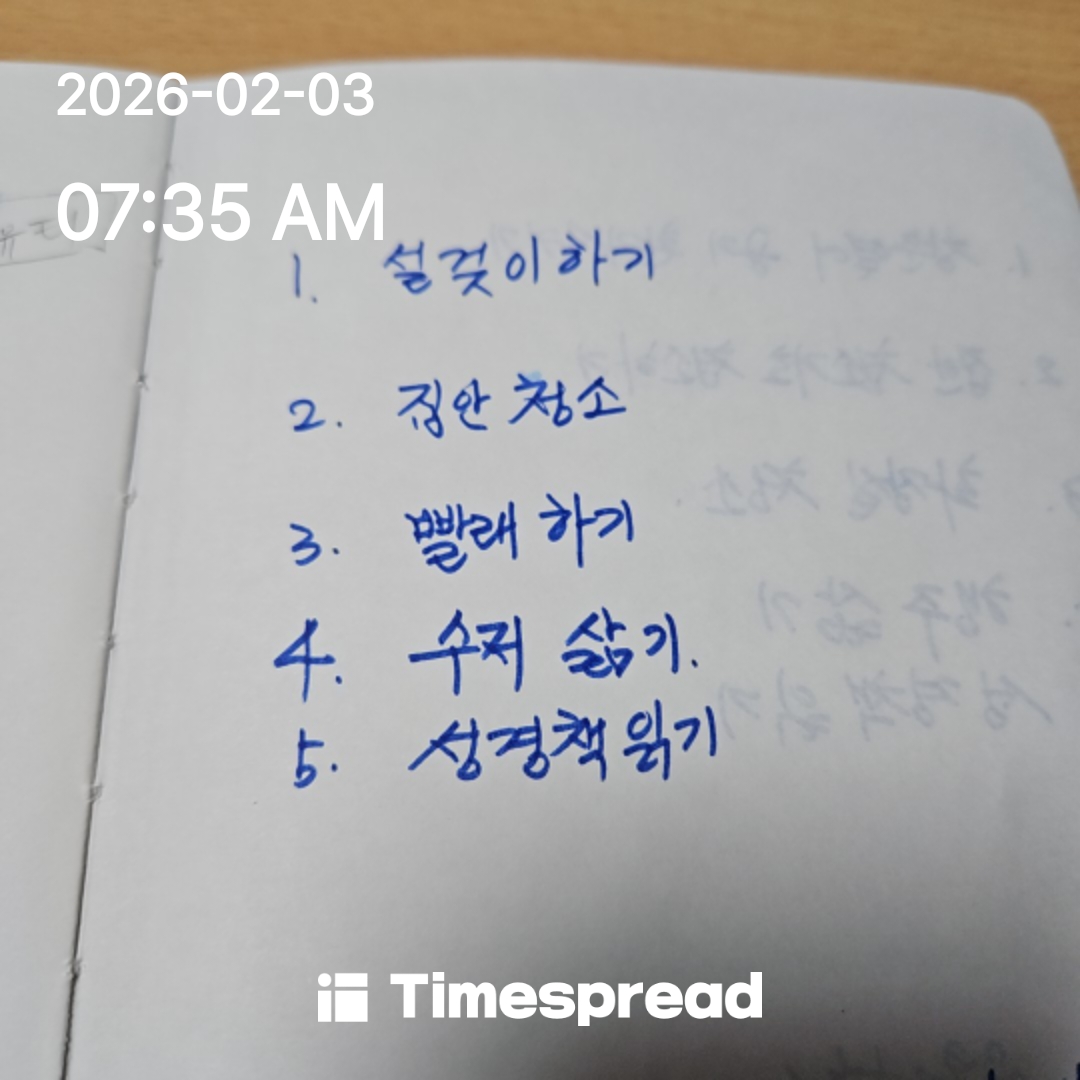 2026-02-03
07:35 AM
1. 설겆이하기
2. 집안 청소
3. 빨래 하기
4. 수저 삶기.
5. 성경책 읽기
Timespread